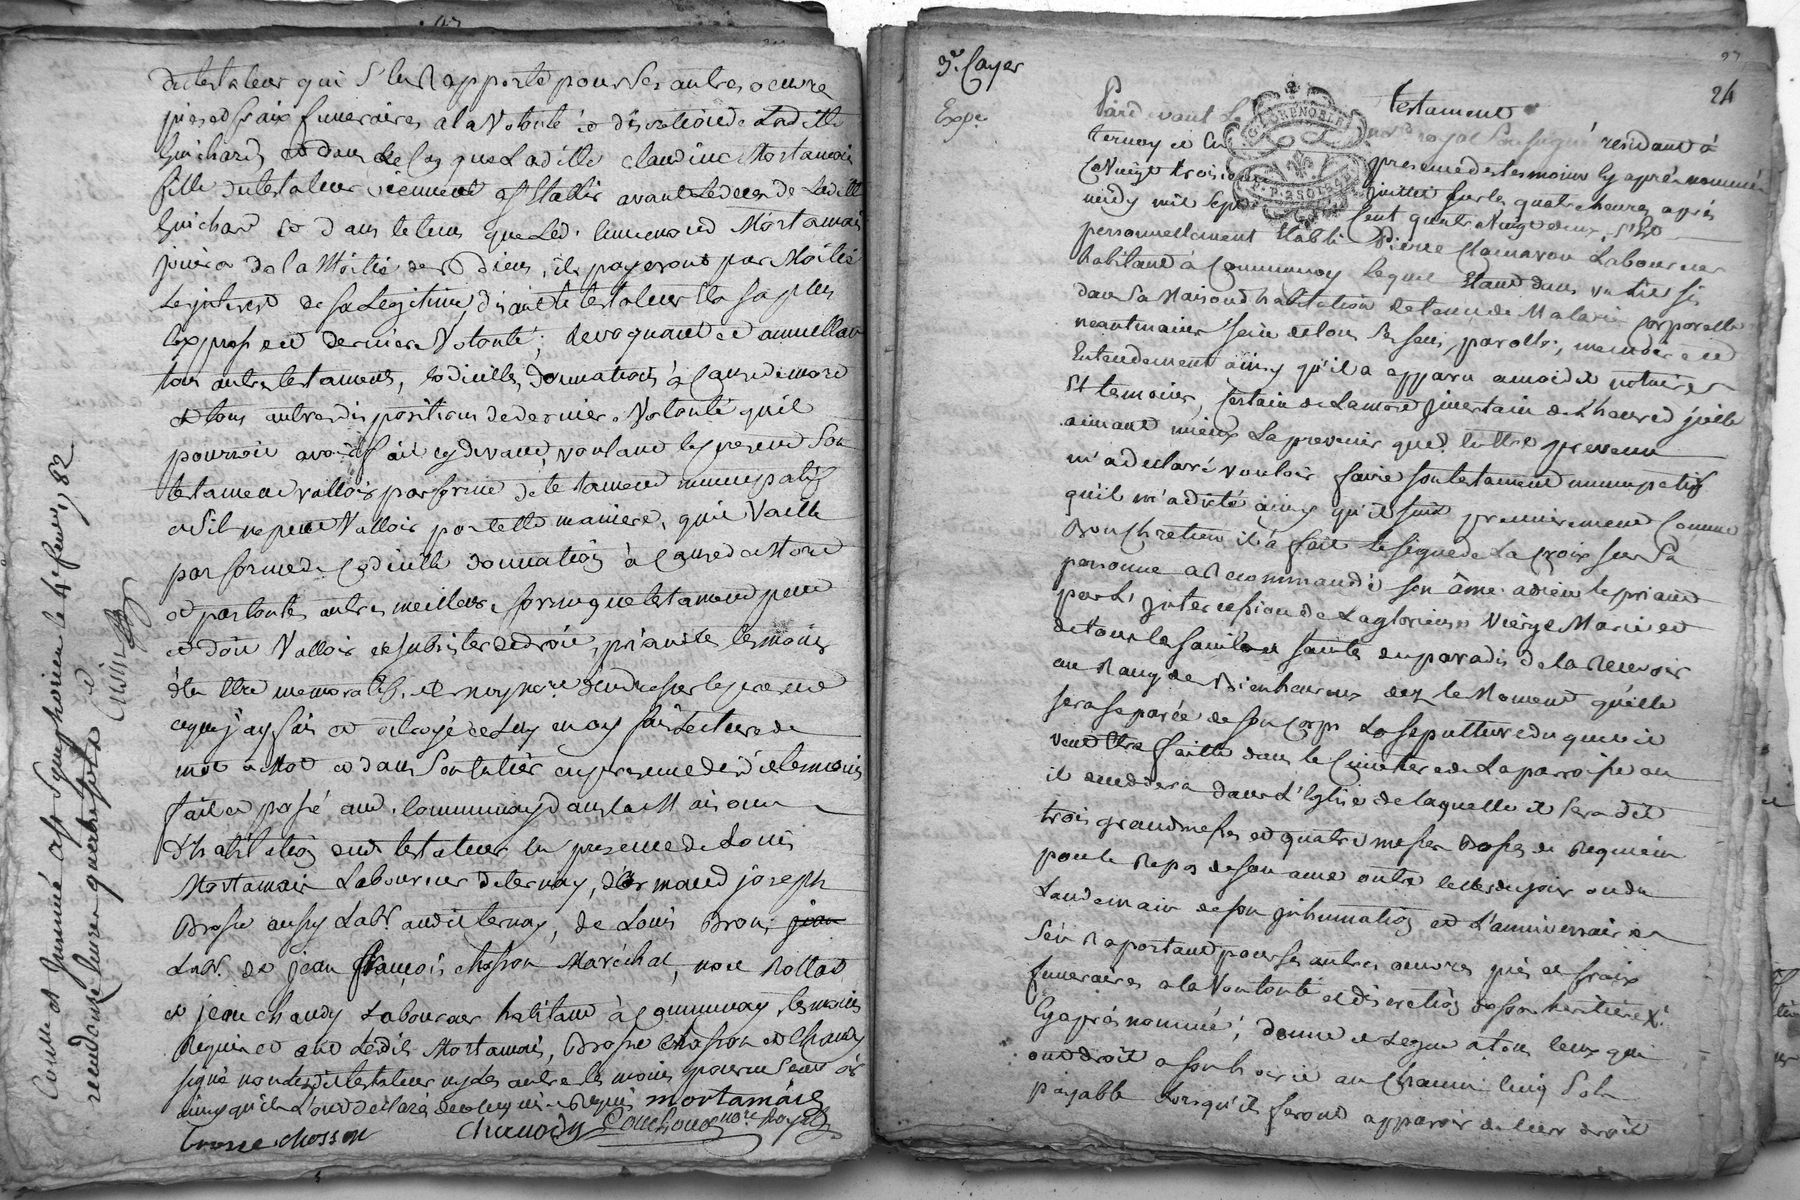 du testateur qui s'en Rapporte pour ses autres oeuvre
pies et fraix funeraires a la Volonté et discretion de Laditte
Guichard et dans le Cas que Laditte Claudine Mortamais
fille du testateur viennent a s'Etablir avant Le deces de Laditte
Guichard et dans le tems que led. Mortamais
jouira de la Moitié des Biens, ils payeront par Moitié
Les interest de sa Legitime, disant le testateur Etre sa plus
Expresse et derniere Volonté; Revoquant et annullant
tous autres testaments, Codicilles, donnations à Cause de mort
et tous autres dispositions de derniere Volonté qu'il
pourroit avoir fait cy devant, voulant le present Son
testament valloir par forme de testament nuncupatif
et s'il ne peut Valloir par cette maniere, qu'il Vaille
par forme de Codicille donnation à Cause de Mort
et par toutes autres meilleure forme que testament peut
et doit Valloir et subsister de droit, priant les temoins
d'en Etre memoratifs, et moy no.re d'en dresser le present
ce que j'ay fait et octroyé et Luy en ay fait Lecture de
mot a Mot et dans Son entier en presence desd. temoins
fait et passé aud. Communay dans la Maison
d'habitation dud. testateur En presence de Louis
Mortamais Laboureur de ternay, d'Ermand joseph
Brosse aussy Lab.r audit ternay, de Louis Bron, jean
Lab.r de jean François chosson Maréchal, noel Rollat
et jean Chaudy Laboureur habitant à Communay temoins
Requis et ont Lesdits Mortamais, Brosse Chosson et Chaudy
signé non led. testateur ny les autres temoins pour ne Scavoir
ainsy qu'ils L'ont declaré de ce enquis et Requis mortamais
brosse chosson Chaudy Ponchon no.re Royal
Controllé et Insinué a St Symphorien le 4 fevr. 1782
rendouze livres quatre sols
Cuisin
3.e Cayer
24
Expé.
testament
Pardevant Le no.re royal Soussigné residant à
ternay et En presence des temoins cy après nommés
Ce Vingt trois juillet sur les quatre heures après
midy mil sept Cent quatre Vingt deux, s'Est
G. GRENOBLE
personnellement Etabli Pierre Chamavon Laboureur
habitant à Communay lequel Etant dans un lit sis
dans Sa Maison d'habitation detenu de Maladie Corporelle
neantmoins sain de tous ses sens, parolle, memoire et
Entendement ainsy qu'il a apparu a moidit notaire
Et temoins, Certain de La mort incertain de L'heure d'jcelle
aimant mieux La prevenir que d'en Etre prevenu
m'a declaré vouloir faire son testament nuncupatif
qu'il m'a dicté ainsy qu'il suit premierement Comme
Bon Chretien il a fait le Signe de La Croix sur Sa
personne a Recommandé son âme a dieu le priant
par L'intercession de La glorieuse Vierge Marie et
de tous les saints et saintes du paradis de la Recevoir
au Rang des Bienheureux dez le Moment qu'elle
sera separée de son Corps La sepulture duquel il
veut Etre faitte dans le Cimetiere de La parroisse ou
il decedera dans L'Eglise de laquelle il sera dit
trois grand messes et quatre messes Basses de Requiem
pour le Repos de son ame outre celles du jour ou du
Landemain de son inhumation et L'anniversaire
s'en Raportant pour ses autres oeuvres pies et fraix
funeraires a la Volonté et discretion de son heritiere
Cy après nommée; donne et Legue a tous Ceux qui
ont droit a son hoirie a Chacun Cinq Sols
payable Lorsqu'ils feront apparoir de leur droit